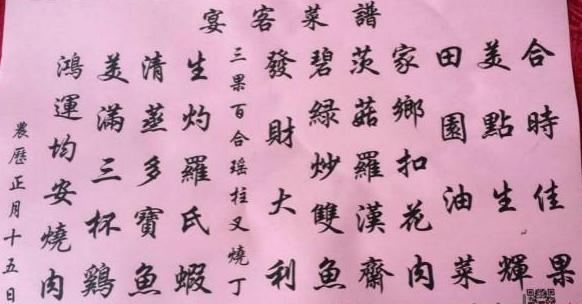 宴客菜譜
合時佳果
美點生輝
田園油菜
家鄉扣花肉
茨菇羅漢齋
碧綠炒雙魚
發財大利
三果百合瑶柱叉燒丁
生灼羅氏蝦
清蒸多寶魚
美滿三杯鷄
鴻運均安燒肉
農歷正月十五日